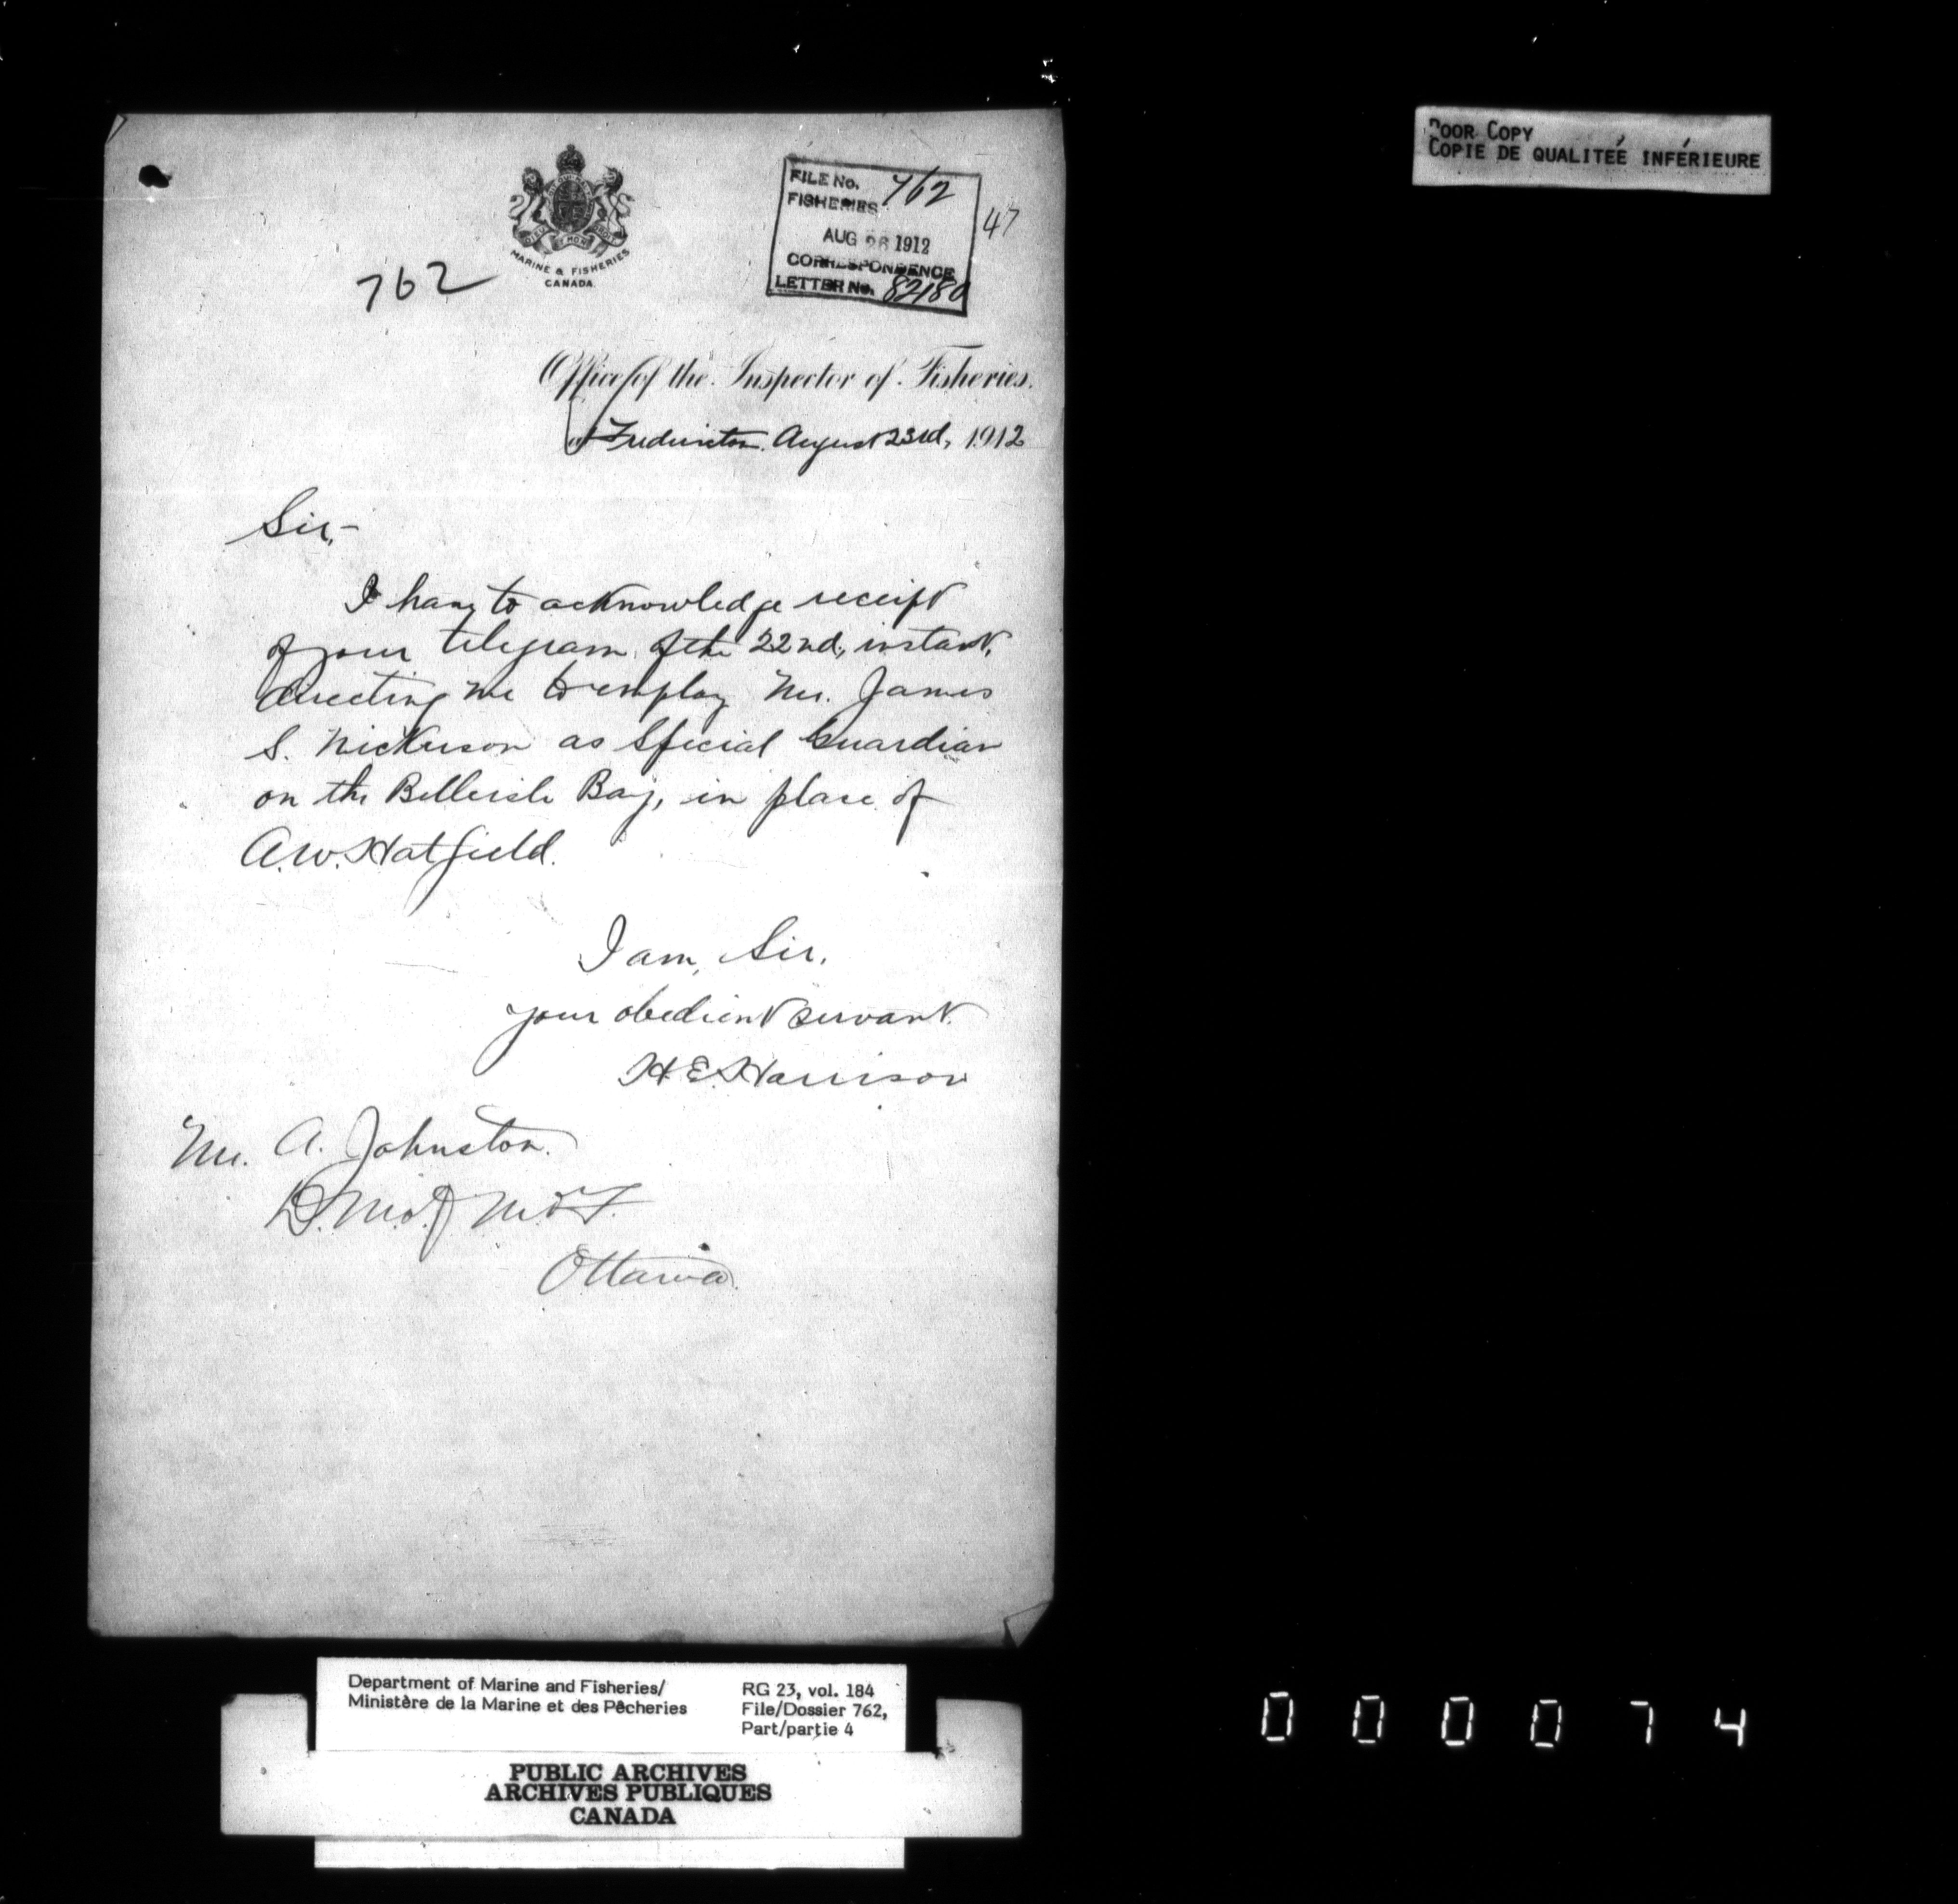 POOR COPY
COPIE DE QUALITEÉ INFÉRIEURE
MARINE & FISHERIES
CANADA
762
FILE No. 762
FISHERIES
47
AUG 26 1912
CORRESPONDENCE
LETTER No. 82180
Office of the Inspector of Fisheries.
at Fredericton. August 23rd, 1912
Sir,-
I have to acknowledge receipt
of your telegram of the 22nd, instant,
directing me to employ Mr. James
S. Nickerson as Special Guardian
on the Belleisle Bay, in place of
A.W. Hatfield.
I am, Sir.
your obedient servant.
H. E. Harrison
Mr. A. Johnston.
D. M. of M. & F.
Ottawa.
Department of Marine and Fisheries/
Ministère de la Marine et des Pêcheries
RG 23, vol. 184
File/Dossier 762,
Part/partie 4
PUBLIC ARCHIVES
ARCHIVES PUBLIQUES
CANADA
000074